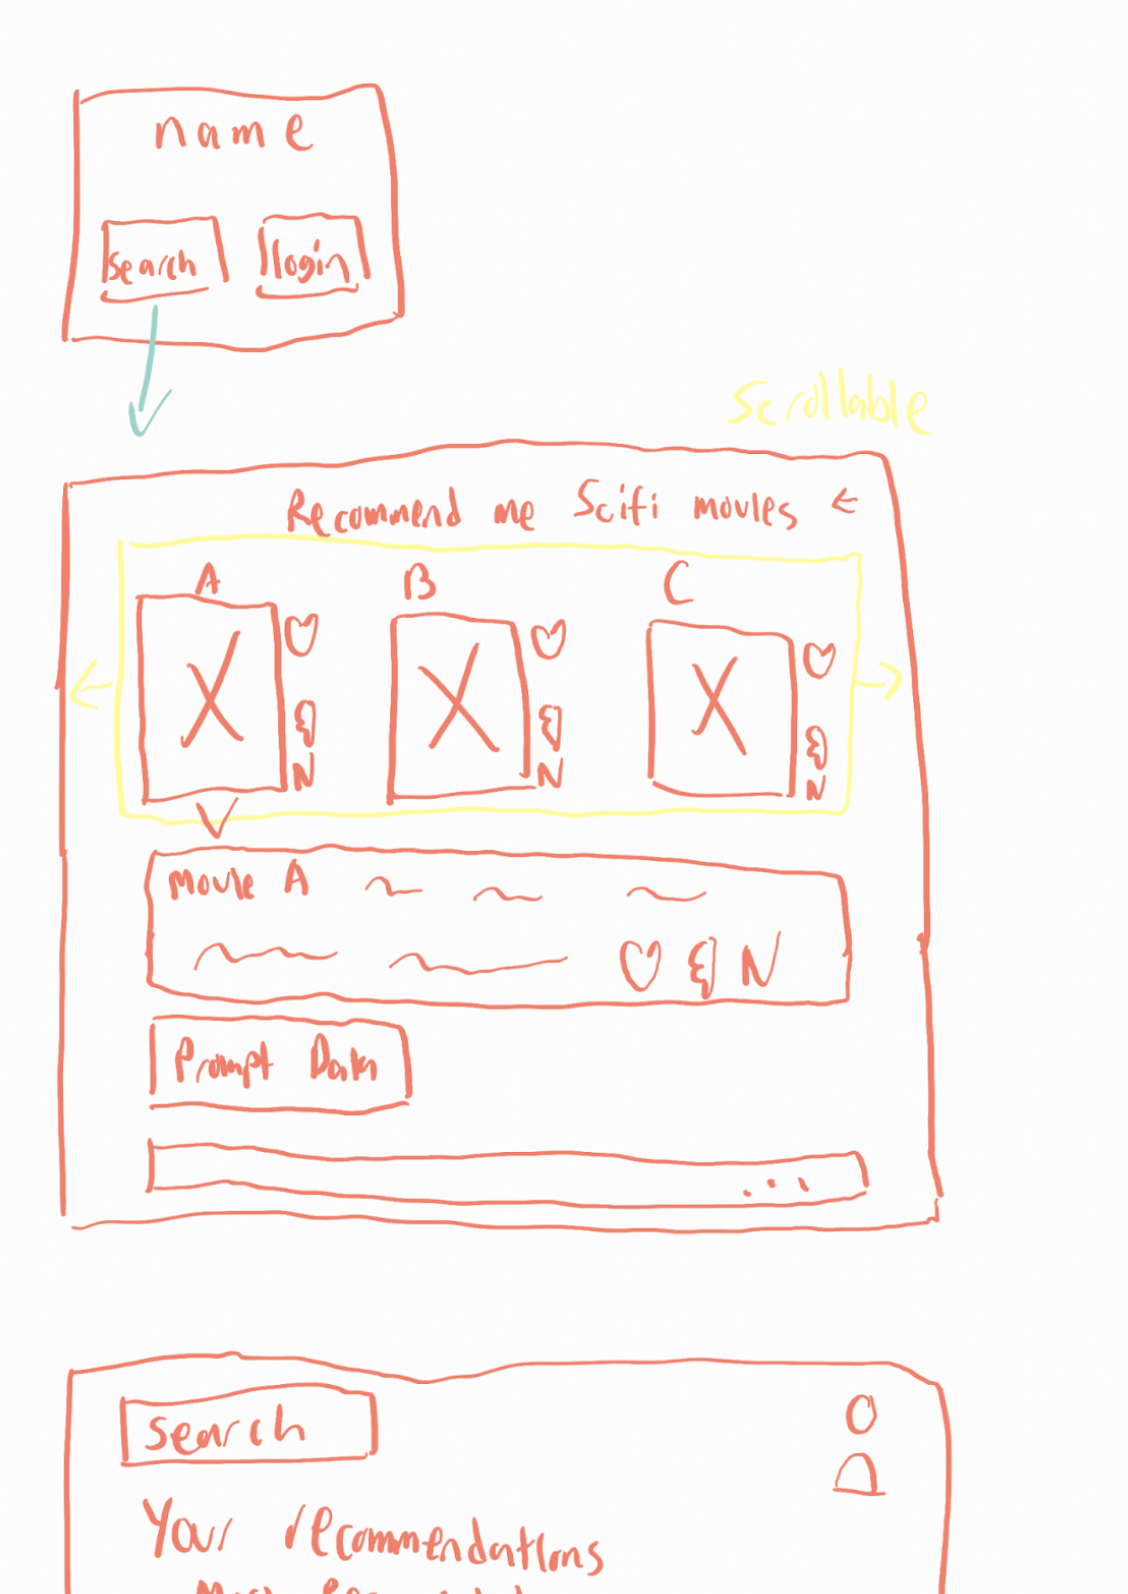 name
search login
scrollable
Recommend me Scifi movies
A B C
N N N
Movie A
N
Prompt Data
...
Search
Your recommendations